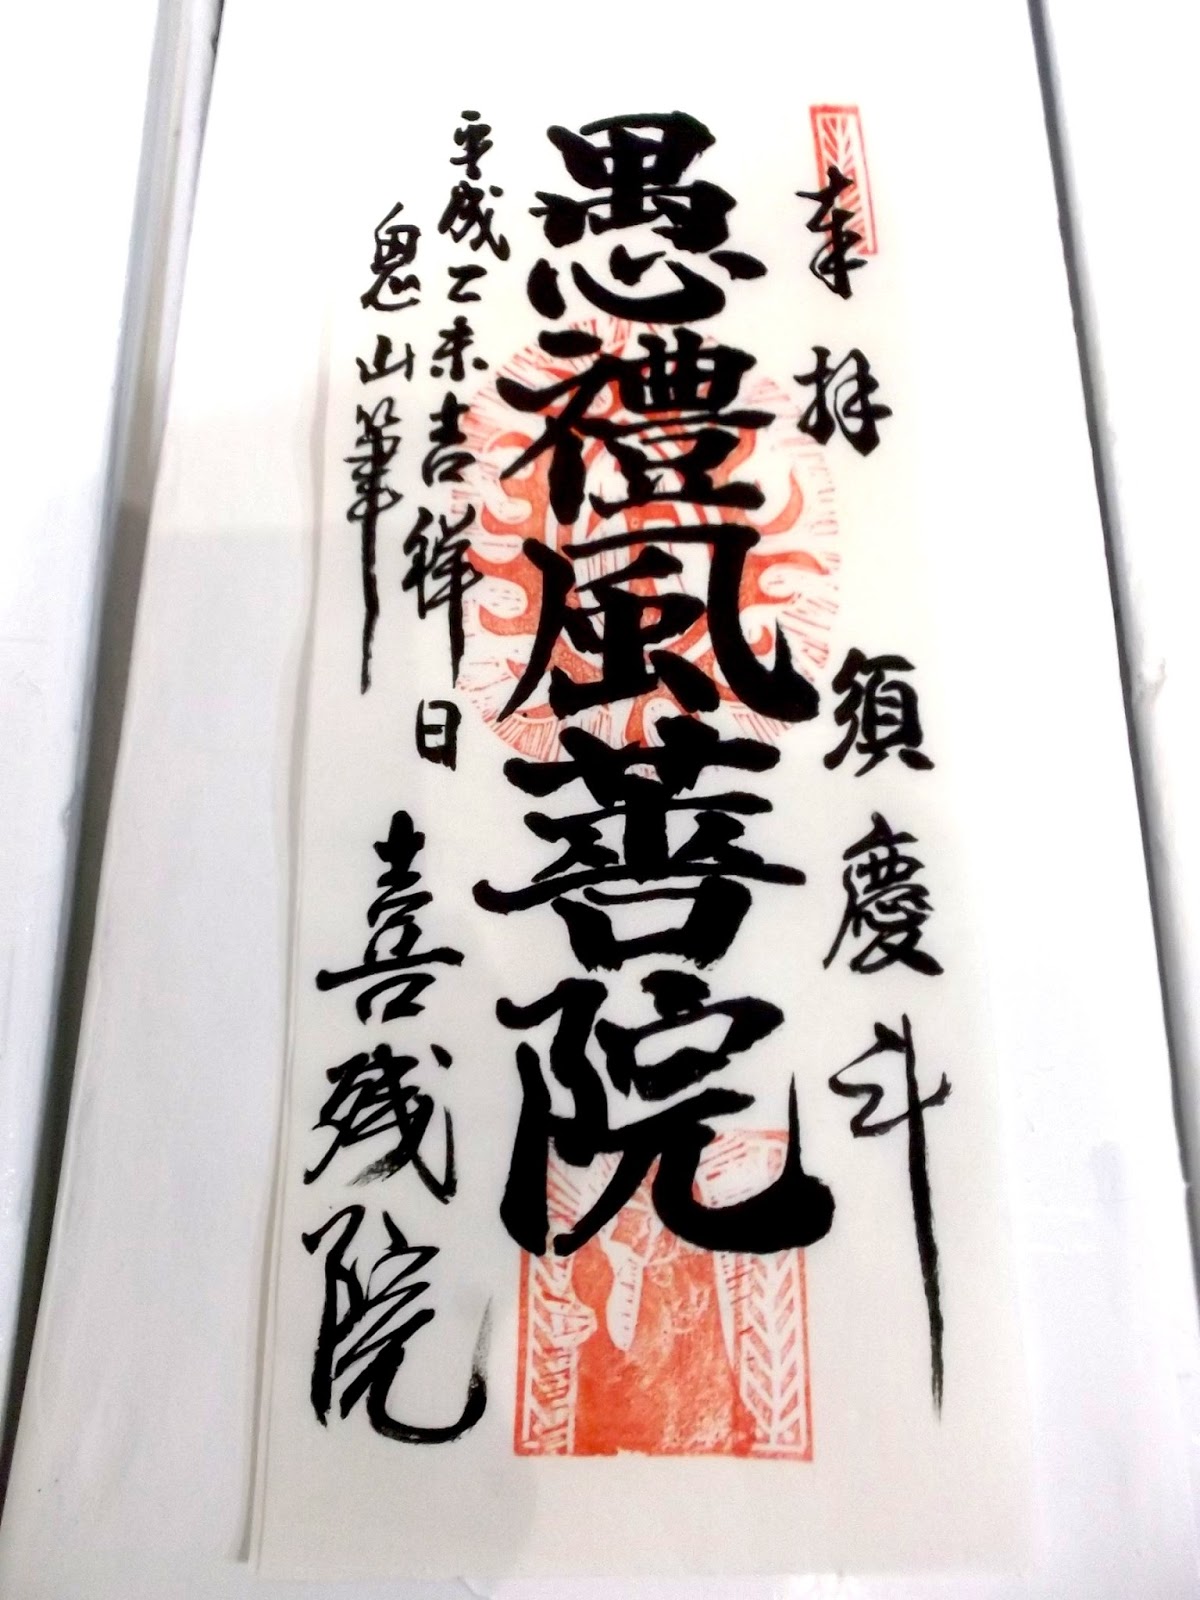 奉拝
須慶斗
愚禮風菩院
平成乙未吉祥日
鬼山筆
喜残院